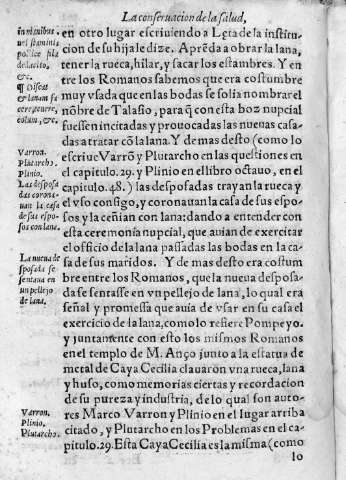 La conseruacion de la salud,
en otro lugar escriuiendo a Leta de la institu-
cion de su hija le dize. Aprēda a obrar la lana,
tener la rueca, hilar, y sacar los estambres. Y en
tre los Romanos sabemos que era costumbre
muy vsada que en las bodas se solia nombrar el
nōbre de Talasio, para q̃ con esta boz nupcial
fuessen incitadas y prouocadas las nueuas casa-
das a tratar cō la lana. Y de mas desto (como lo
escriue Varrō y Plutarcho en las questiones en
el capitulo. 29. y Plinio en el libro octauo, en el
capitulo. 48.) las desposadas trayan la rueca y
el vso consigo, y coronauan la casa de sus espo-
sos y la ceñian con lana: dando a entender con
esta ceremonia nupcial, que auian de exercitar
el officio de la lana passadas las bodas en la ca-
sa de sus maridos. Y de mas desto era costum
bre entre los Romanos, que la nueua desposa-
da se sentasse en vn pellejo de lana, lo qual era
señal y promessa que auia de vsar en su casa el
exercicio de la lana, como lo refiere Pompeyo.
y juntamente con esto los mismos Romanos
en el templo de M. Anço junto a la estatua de
metal de Caya Cecilia clauaron vna rueca, lana
y huso, como memorias ciertas y recordacion
de su pureza y industria, de lo qual son auto-
res Marco Varron y Plinio en el lugar arriba
citado, y Plutarcho en los Problemas en el ca-
pitulo. 29. Esta Caya Cecilia es la misma (como
lo
in manibus.
&c.
¶ Discat
& lanam fa
cere, tenere,
colum, &c.
Varron.
Plutarcho.
Plinio.
Las desposa
das corona-
uan la casa
de sus espo-
sos con lana.
La nueua de
sposada se
sentaua en
un pellejo
de lana.
Varron.
Plinio.
Plutarcho.